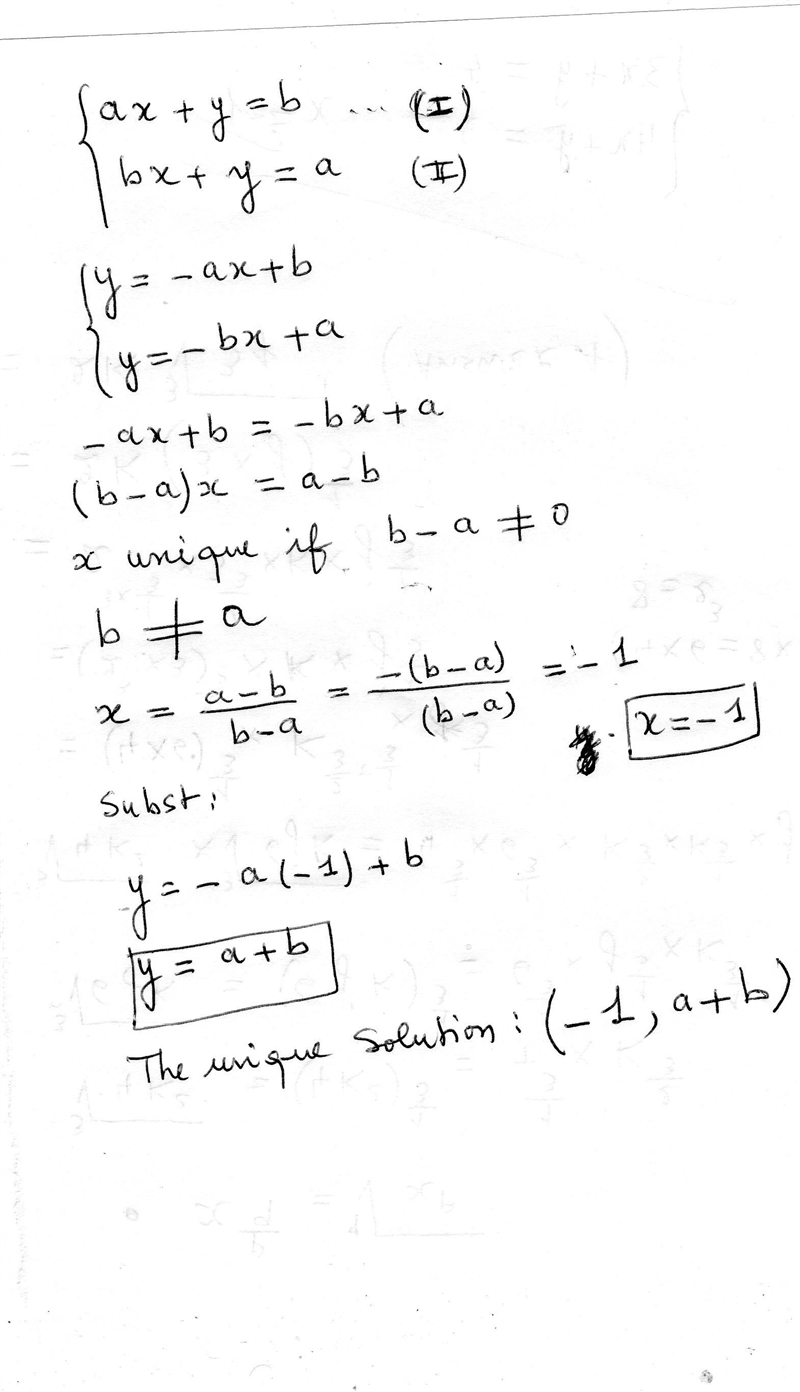 ax + y = b ... (I)
bx + y = a (II)
y = -ax + b
y = -bx + a
-ax + b = -bx + a
(b-a)x = a-b
x unique if b-a ≠ 0
b ≠ a
x = \frac{a-b}{b-a} = \frac{-(b-a)}{(b-a)} = -1
x = -1
Subst:
y = -a(-1) + b
y = a+b
The unique Solution: (-1, a+b)